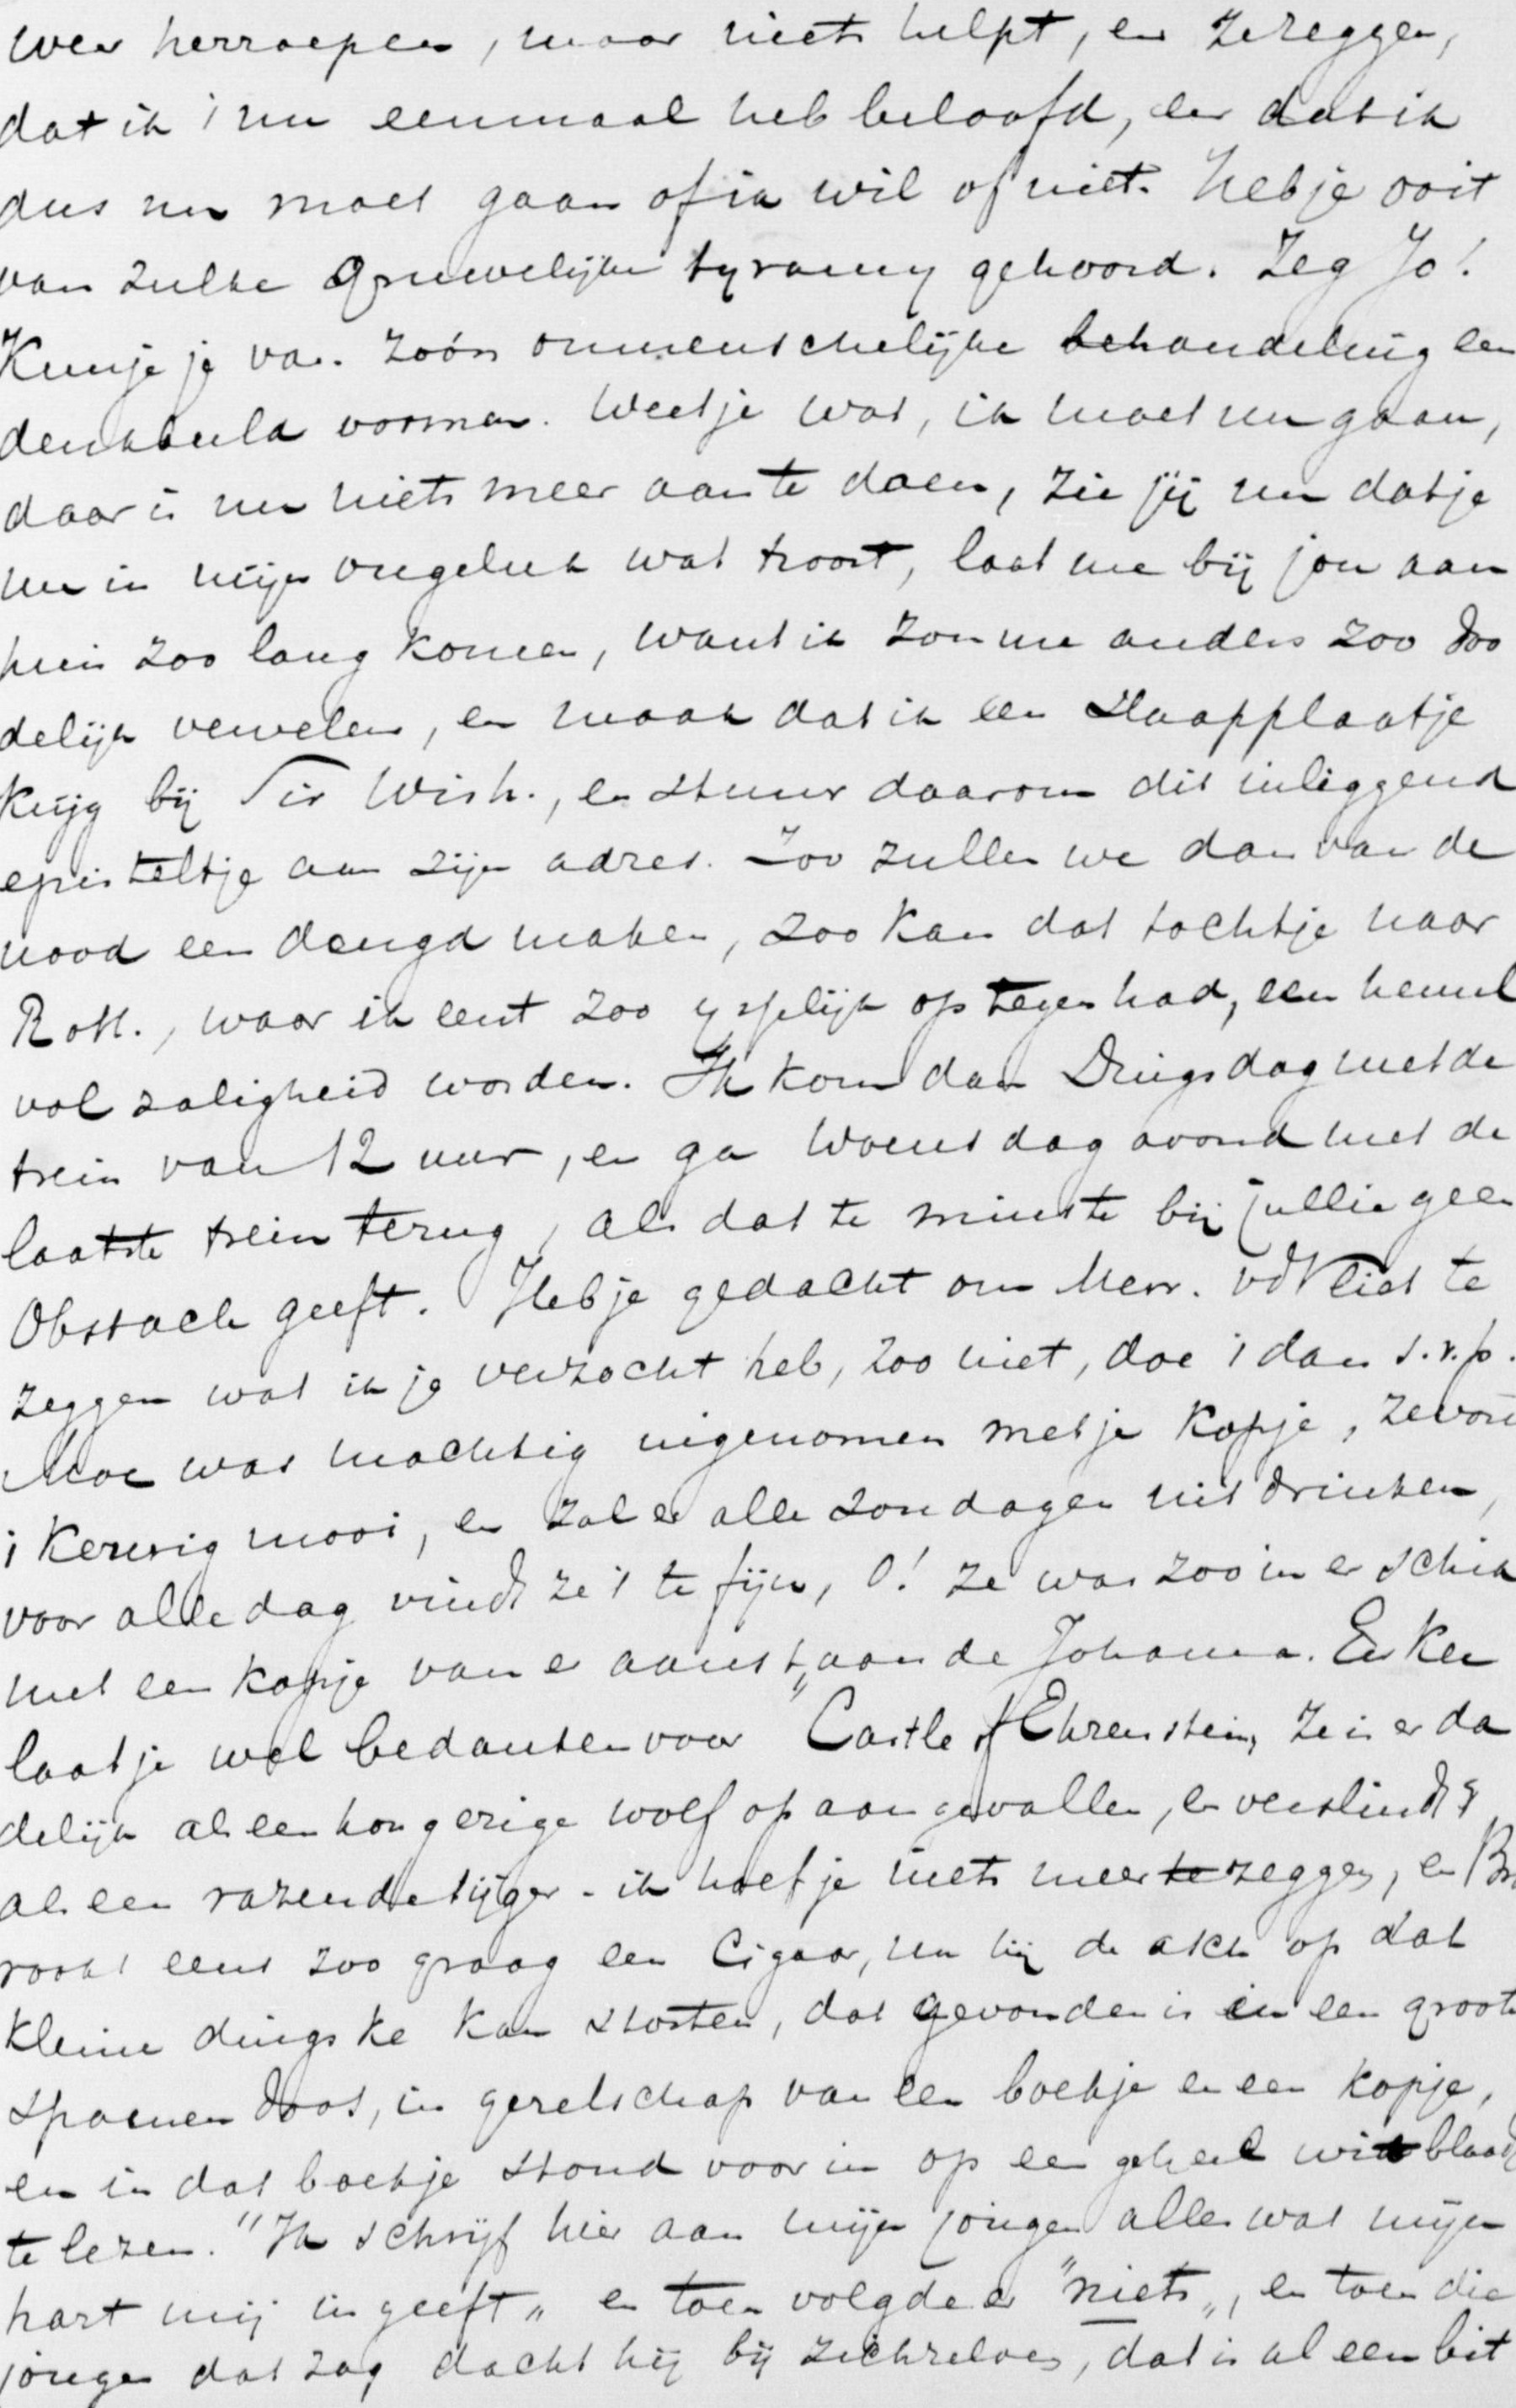 weer herroepen, maar niets helpt, en ze zeggen,
dat ik 't nu eenmaal heb beloofd, en dat ik
dus nu moet gaan of ik wil of niet. Heb je ooit
van zulke gruwelijke tyranny gehoord. Zeg Jo!
Kun je je van zoo'n onmenschelijke behandeling een
denkbeeld vormen. Weet je wat, ik moet nu gaan,
daar is nu niets meer aan te doen, zie jij nu dat je
me in mijn ongeluk wat troost, laat me bij jou aan
huis zoo lang komen, want ik zou me anders zoo doo
delijk vervelen, en maak dat ik een slaapplaatje
krijg bij Sir Wish., en stuur daarom dit inliggend
episteltje aan zijn adres. Zoo zullen we dan van de
nood een deugd maken, zoo kan dat tochtje naar
Rott., waar ik eerst zoo ysselijk op tegen had, een hemel
vol zaligheid worden. Ik kom dan Dingsdag met de
trein van 12 uur, en ga Woensdag avond met de
laatste trein terug, als dat te minste bij jullie geen
Obstacle geeft. Heb je gedacht om Mevr. vd Vliet te
zeggen wat ik je verzocht heb, zoo niet, doe 't dan s.v.p.
Moe was machtig ingenomen met je kopje, ze vond
't keurig mooi, en zal er alle Zondagen uit drinken,
voor alle dag vindt ze 't te fijn, O! ze was zoo in er schik
met een kopje van er aanstaande Johanna. En Ker
laat je wel bedanken voor "Castle of Ehrenstein, ze is er da
delijk als een hongerige wolf op aan gevallen, en verslindt 't
als een razende tijger - ik hoef je niets meer te zeggen, en Br
rookt eens zoo graag een Cigaar, nu hij de asch op dat
kleine dingske kan storten, dat gevonden is in een groote
spaenen doos, in gezelschap van een boekje en een kopje,
en in dat boekje stond voor in op een geheel wit blaadj
te lezen. "Ik schrijf hier aan mijn jongen alles wat mijn
hart mij in geeft" en toen volgde er "niets", en toen die
jongen dat zag dacht hij bij zichzelven, dat is al een bit